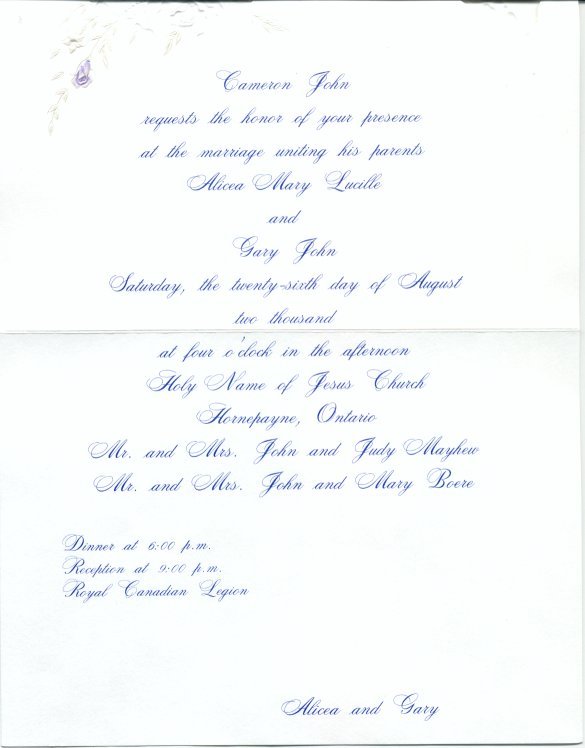 Cameron John
requests the honor of your presence
at the marriage uniting his parents
Alicea Mary Lucille
and
Gary John
Saturday, the twenty-sixth day of August
two thousand
at four o'clock in the afternoon
Holy Name of Jesus Church
Hornepayne, Ontario
Mr. and Mrs. John and Judy Mayhew
Mr. and Mrs. John and Mary Boere
Dinner at 6:00 p.m.
Reception at 9:00 p.m.
Royal Canadian Legion
Alicea and Gary